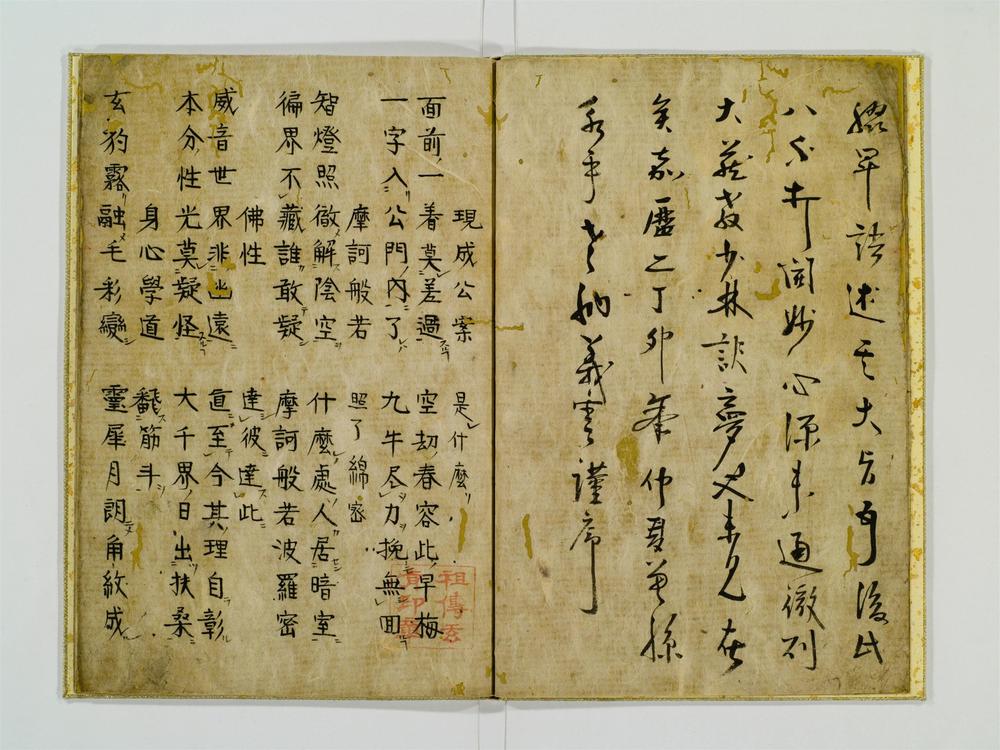 綴卑語述其大旨耳後此
開妙心源未通徹則
大藏教少林訣夢也未見在
矣嘉曆二丁卯年仲夏曾孫
永平老衲義雲謹序
現成公案 是什麼
面前一着莫差過 空劫春容此早梅
一字入公門内了 九牛尽力挽無囬
摩訶般若 照了綿密
智燈照徹解陰空 什麼處人居暗室
徧界不藏誰敢疑 摩訶般若波羅密
佛性 達彼達此
威音世界非幽遠 直至今其理自彰
本分性光莫疑怪 大千界日出扶桑
身心學道 飜筋斗
玄豹霧融毛彩變 靈犀月朗角紋成